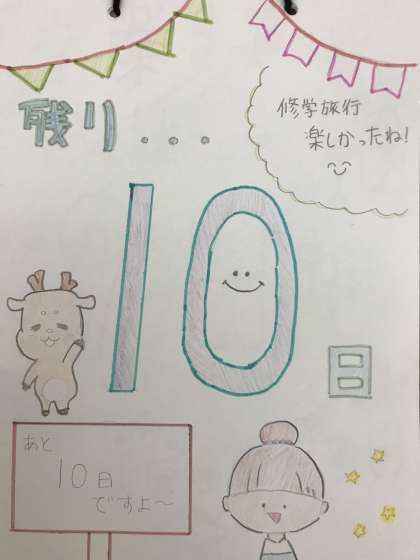 残り...
修学旅行
楽しかったね!
10
日
あと
10日
ですよ〜